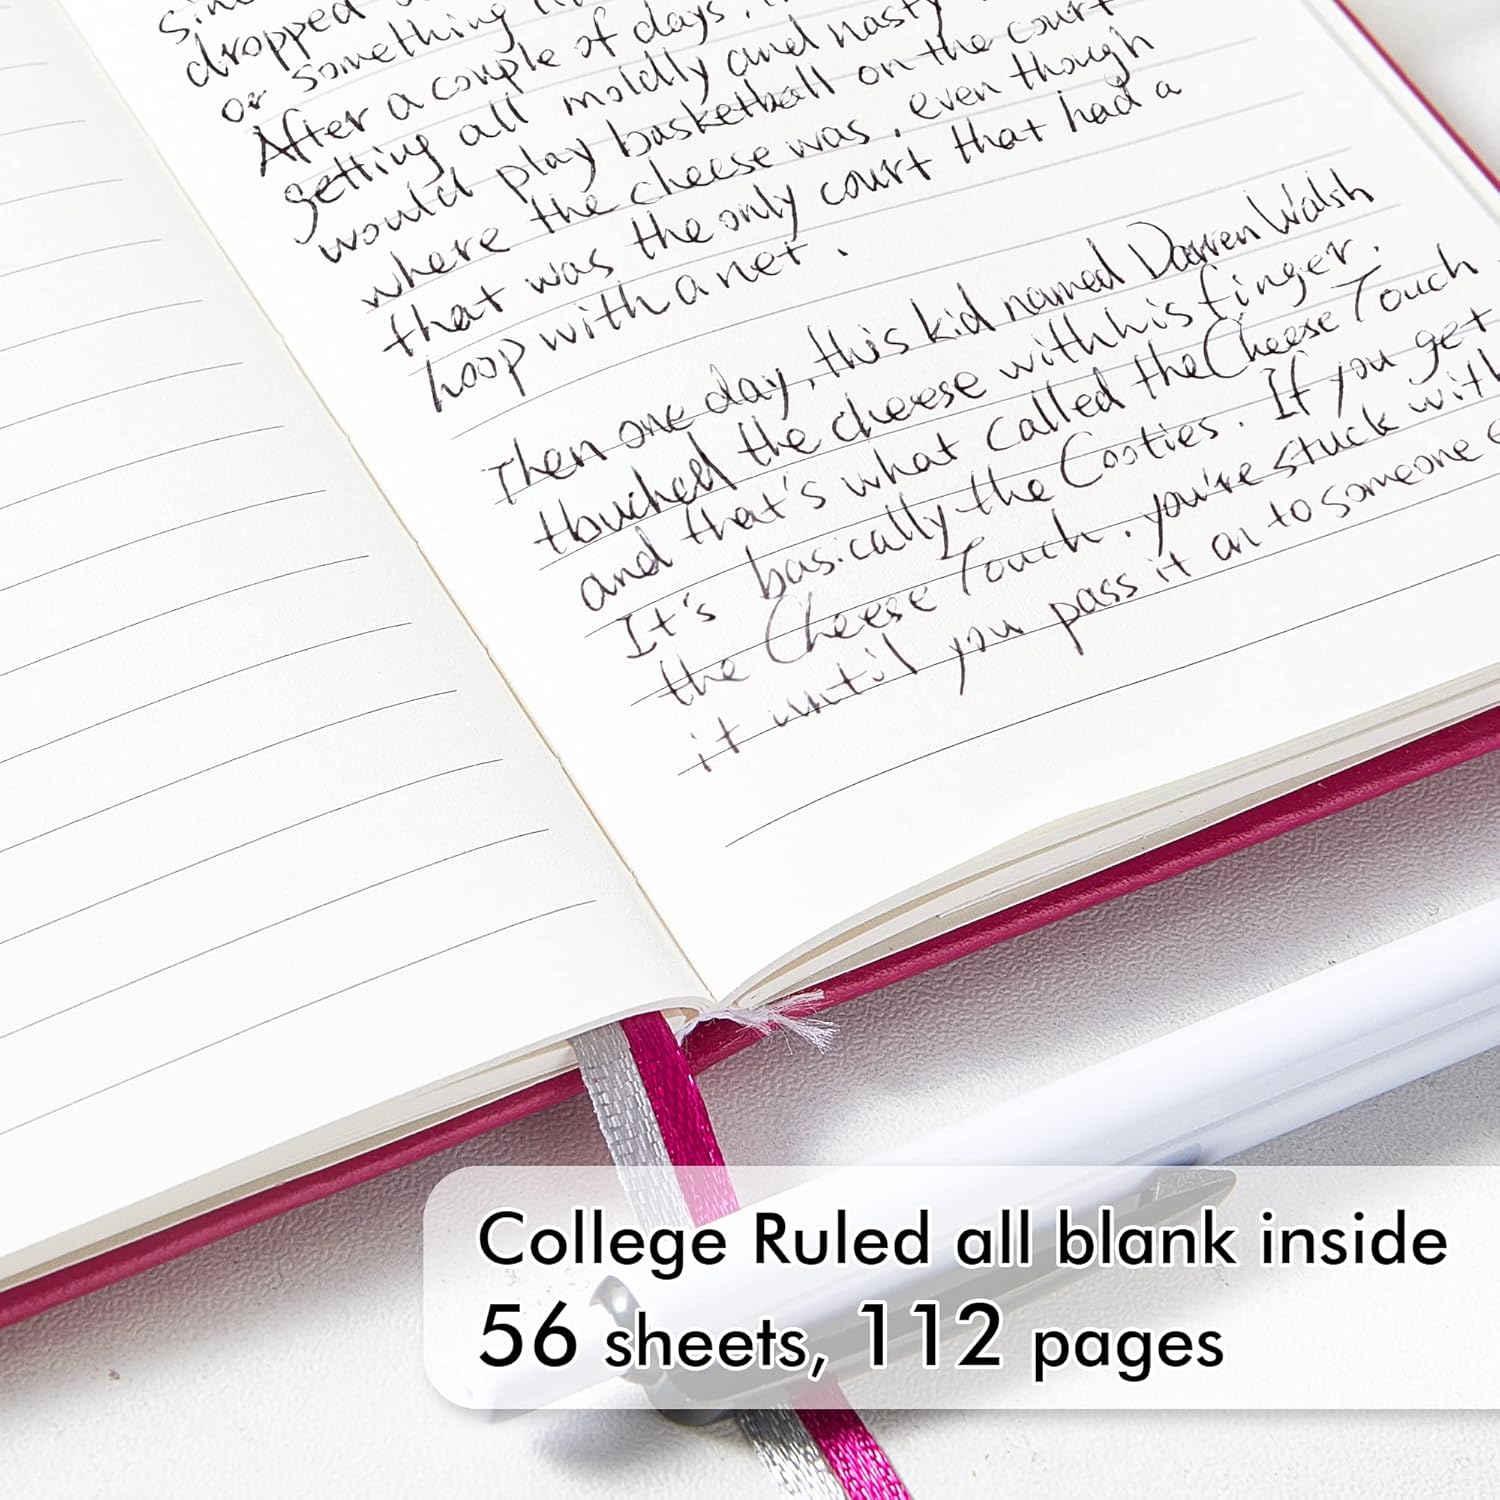 dropped
or something
After a couple of days,
getting all moldly and nasty
would play basketball on the court
where the cheese was, even though
that was the only court that had a
hoop with a net.
Then one day, this kid named Darren Walsh
thouched the cheese with his finger.
and that's what called the Cheese Touch
It's basically the Cooties. If you get
the Cheese Touch. you're stuck with
it until you pass it on to someone
College Ruled all blank inside
56 sheets, 112 pages